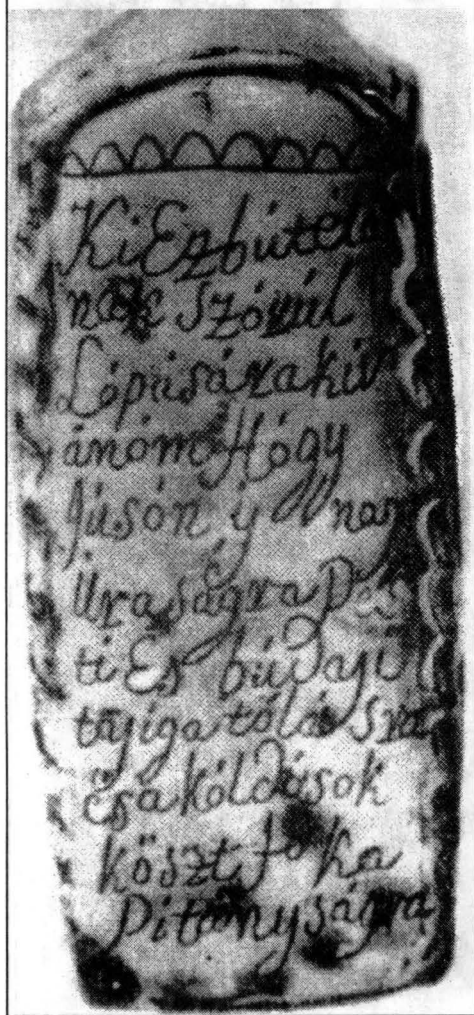 Ki Ez bútélá
nak szóvúl
Lépisárakiv
ánóm Hógy
jusón ij nagy
úraságra Pes
ti Es búdaji
tajigatólásra
csakóldúsok
köszt fő ka
Pitányságra